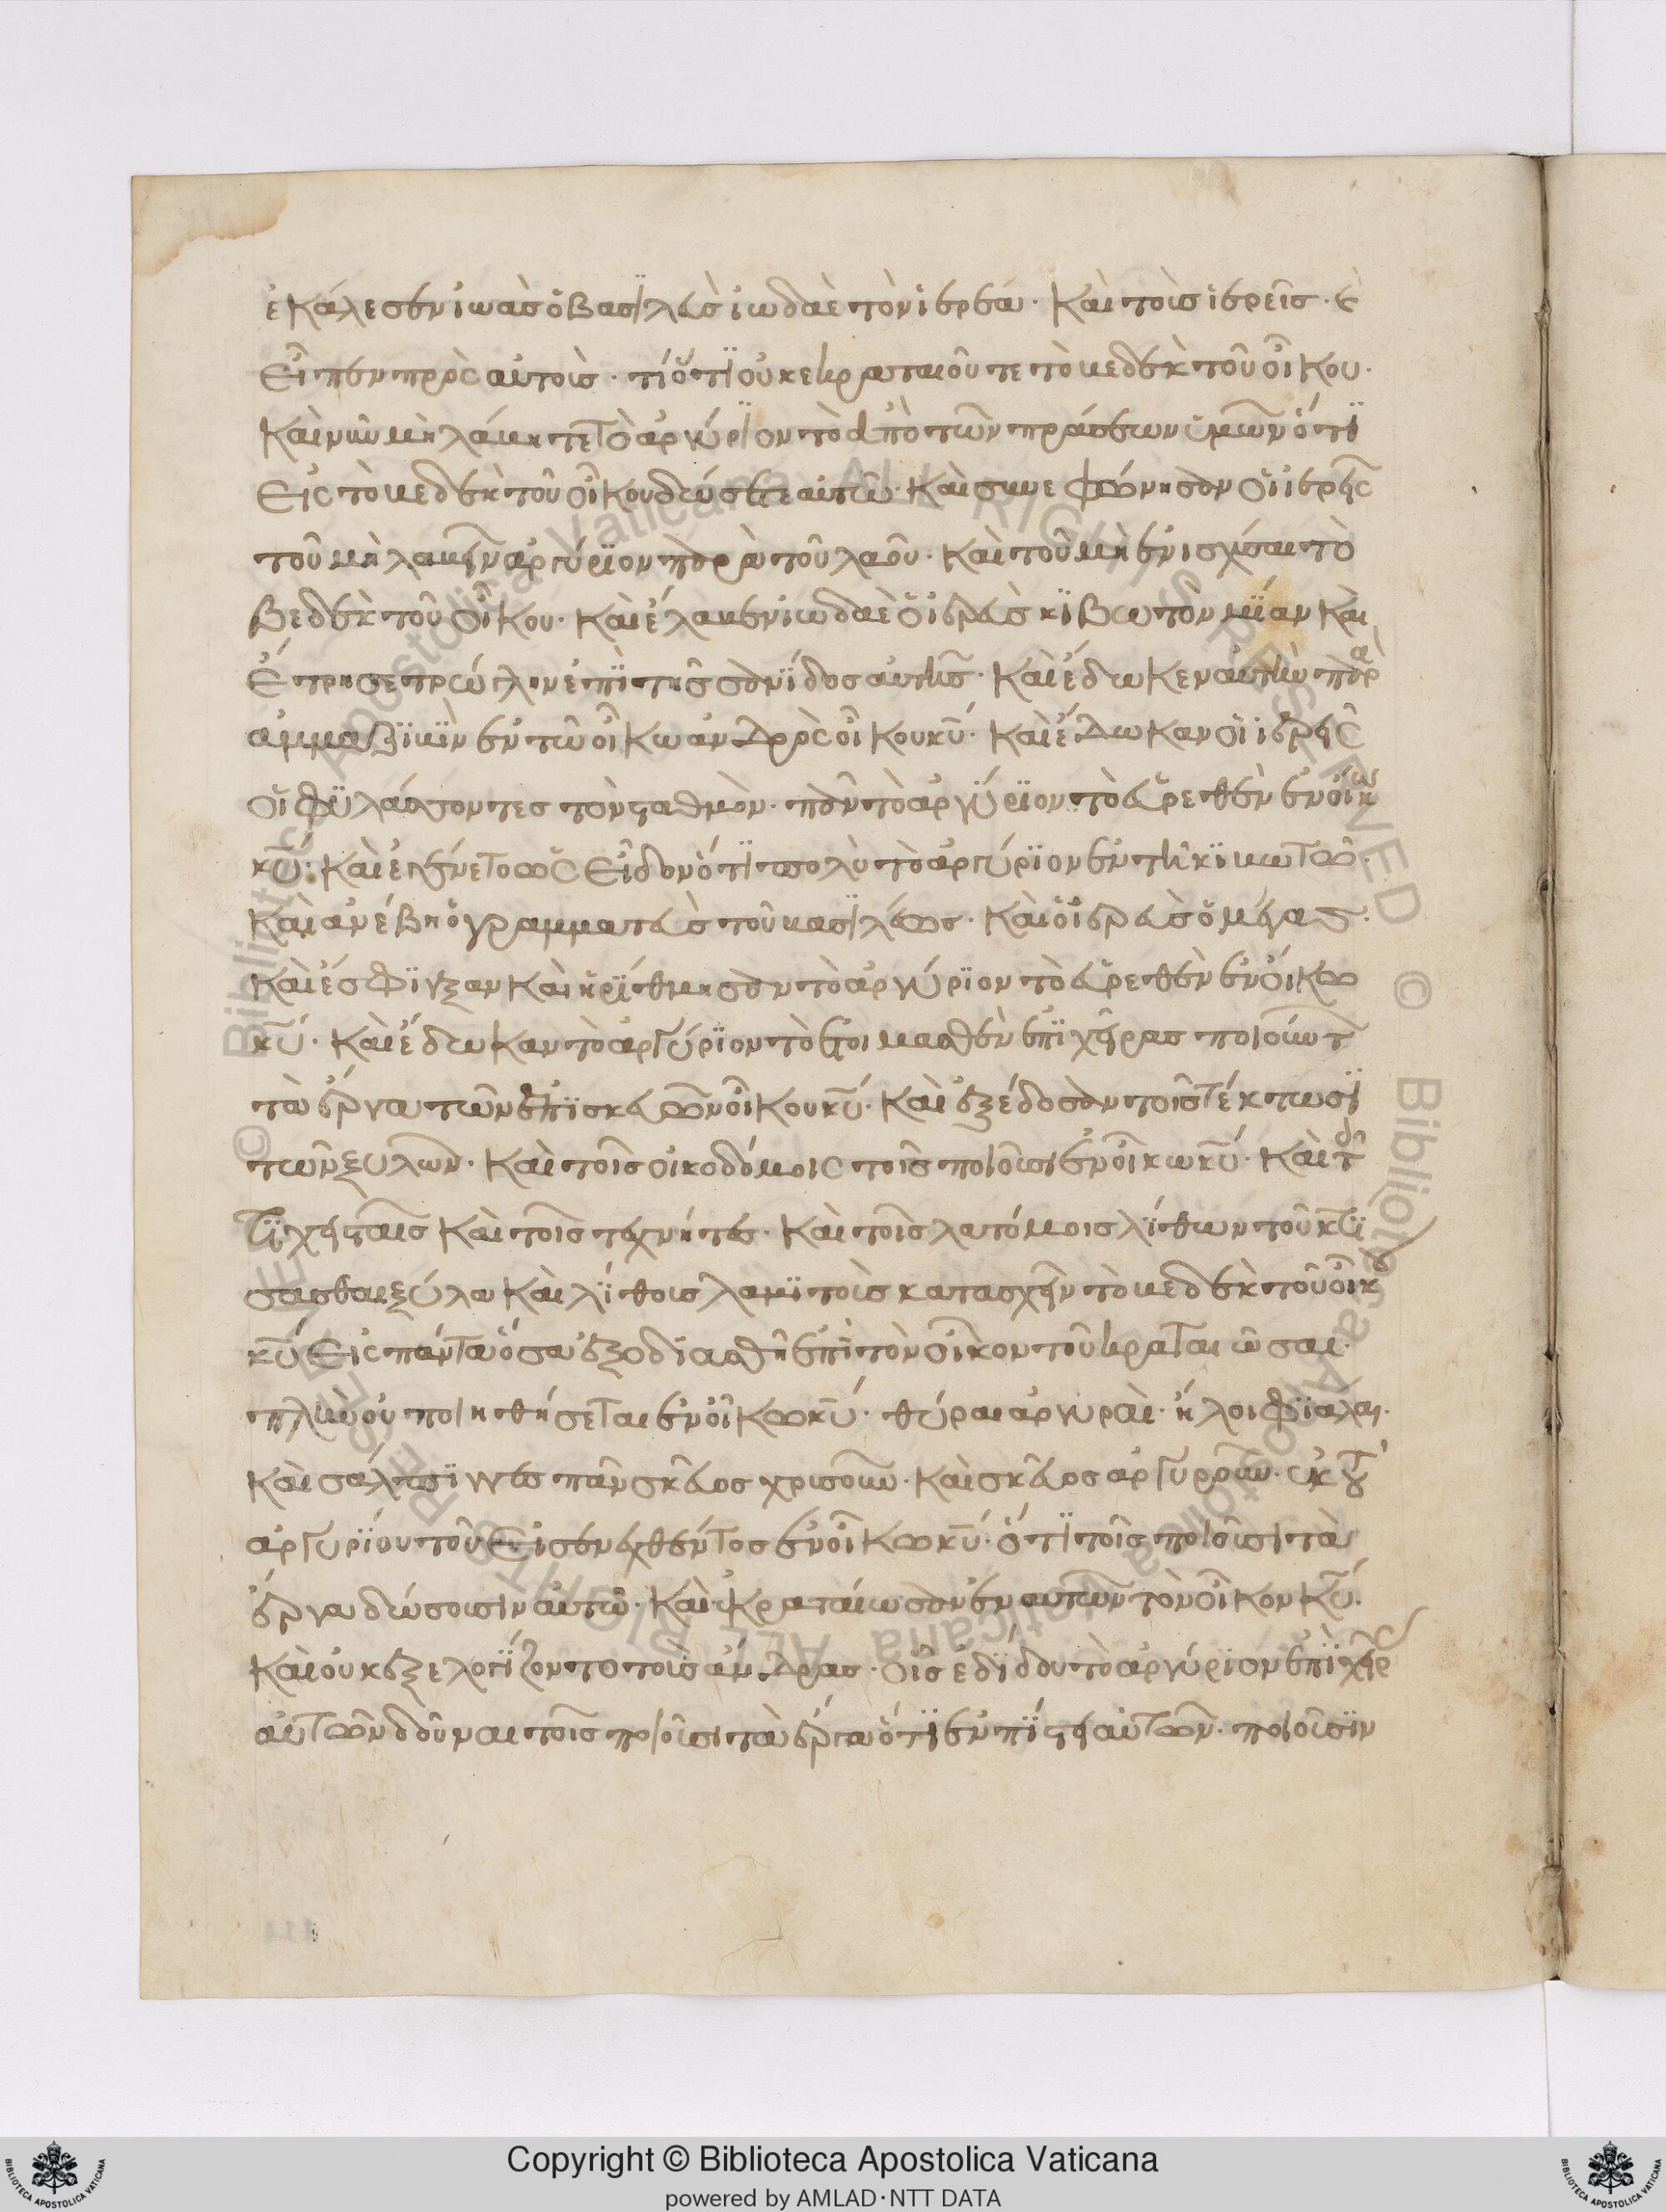 ἐκάλεσεν ἰωὰς ὁ βασϊλεὺς ἰωδαὲ τὸν ἱερέα· καὶ τοὺς ἱερεῖς· καὶ
εἶπεν πρὸς αὐτούς· τί ὅτϊ οὐκ ἐκραταιοῦτε τὸ βεδὲκ τοῦ οἴκου·
καὶ νῦν μὴ λάβητε τὸ ἀργύρϊον τὸ ἀπὸ τῶν πράσεων ὑμῶν ὅτϊ
εἰς τὸ βεδὲκ τοῦ οἴκου δώσετε αὐτῶ· καὶ συνεφώνησαν οἱ ἱερεῖς
τοῦ μὴ λαβεῖν ἀργύρϊον παρὰ τοῦ λαοῦ· καὶ τοῦ μὴ ἐνισχύσαι τὸ
βεδὲκ τοῦ οἴκου· καὶ ἔλαβεν ἰωδαὲ ὁ ἱερεὺς κϊβωτὸν μΐαν καὶ
ἔτρησε τρώγλην ἐπϊ τῆς σανΐδος αὐτῆς· καὶ ἔδωκεν αὐτὴν παρὰ
ἀμμαζϊβϊν ἐν τῶ οἴκω ἀνδρὸς οἴκου κυ· καὶ ἔδωκαν οἱ ἱερεῖς
οἱ φϋλάσσοντες τὸν σταθμὸν· πᾶν τὸ ἀργύρϊον τὸ εὑρεθὲν ἐν οἴκω
κυ· καὶ ἐγένετο ὡς εἶδον ὅτϊ πολὺ τὸ ἀργύρϊον ἐν τῆ κϊβωτῶ·
καὶ ἀνέβη ὁ γραμματεὺς τοῦ βασϊλέως· καὶ ὁ ἱερεὺς ὁ μέγας·
καὶ ἔσφϊγξαν καὶ ἠρΐθμησαν τὸ ἀργύρϊον τὸ εὑρεθὲν ἐν οἴκω
κυ· καὶ ἔδωκαν τὸ ἀργύρϊον τὸ ἑτοιμασθὲν ἐπϊ χεῖρας ποιούντ
τὰ ἔργα τῶν ἐπϊσκόπων οἴκου κυ· καὶ ἐξέδοσαν τοῖς τέκτωσϊ
τῶν ξυλῶν· καὶ τοῖς οἰκοδόμοις τοῖς ποιοῦσι ἐν οἴκω κυ· καὶ τοῖς
τϊχισταῖς καὶ τοῖς τεχνήτες· καὶ τοῖς λατόμοις λΐθων τοῦ κτϊ
σασθαι ξύλα καὶ λΐθοις λαμϊτοὶς κατασχεῖν τὸ βεδὲκ τοῦ οἴκου
κυ εἰς πάντα ὅσα ἐξοδιασθῆ ἐπὶ τὸν οἶκον τοῦ κραταιῶσαι·
πλὴν οὐ ποιηθήσεται ἐν οἴκω κυ· θύραι ἀργυραὶ· ἧλοι φϊάλαι·
καὶ σάλπϊγγες πᾶν σκεῦος χρυσοῦν· καὶ σκεῦος ἀργυροῦν· ἐκ τοῦ
ἀργυρΐου τοῦ εἰσενεχθέντος ἐν οἴκω κυ· ὅτϊ τοῖς ποιοῦσι τὰ
ἔργα δώσουσιν αὐτῶ· καὶ ἐκραταίωσαν ἐν αυτῶν τὸν οἶκον κυ·
καὶ οὐκ ἐξελογΐζοντο τοὺς ἄνδρας· οἷς ἐδίδου τὸ ἀργύρϊον ἐπϊ χεῖρ
αὐτῶν δοῦναι τοῖς ποιοῦσι τὰ ἔργα ὅτϊ ἐν πΐστει αὐτῶν· ποιοῦσϊν
Copyright © Biblioteca Apostolica Vaticana
powered by AMLAD·NTT DATA